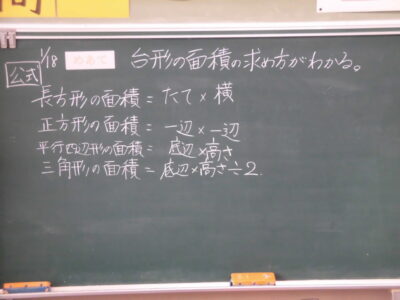 1/18 めあて 台形の面積の求め方がわかる。
公式
長方形の面積 = たて × 横
正方形の面積 = 一辺 × 一辺
平行四辺形の面積 = 底辺 × 高さ
三角形の面積 = 底辺 × 高さ ÷ 2